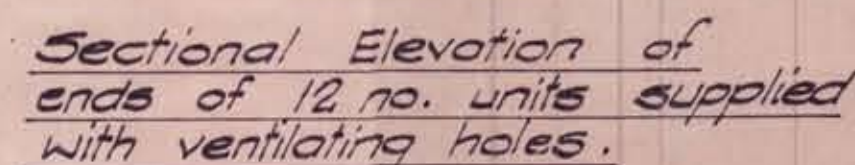 Sectional Elevation of
ends of 12 no. units supplied
with ventilating holes.